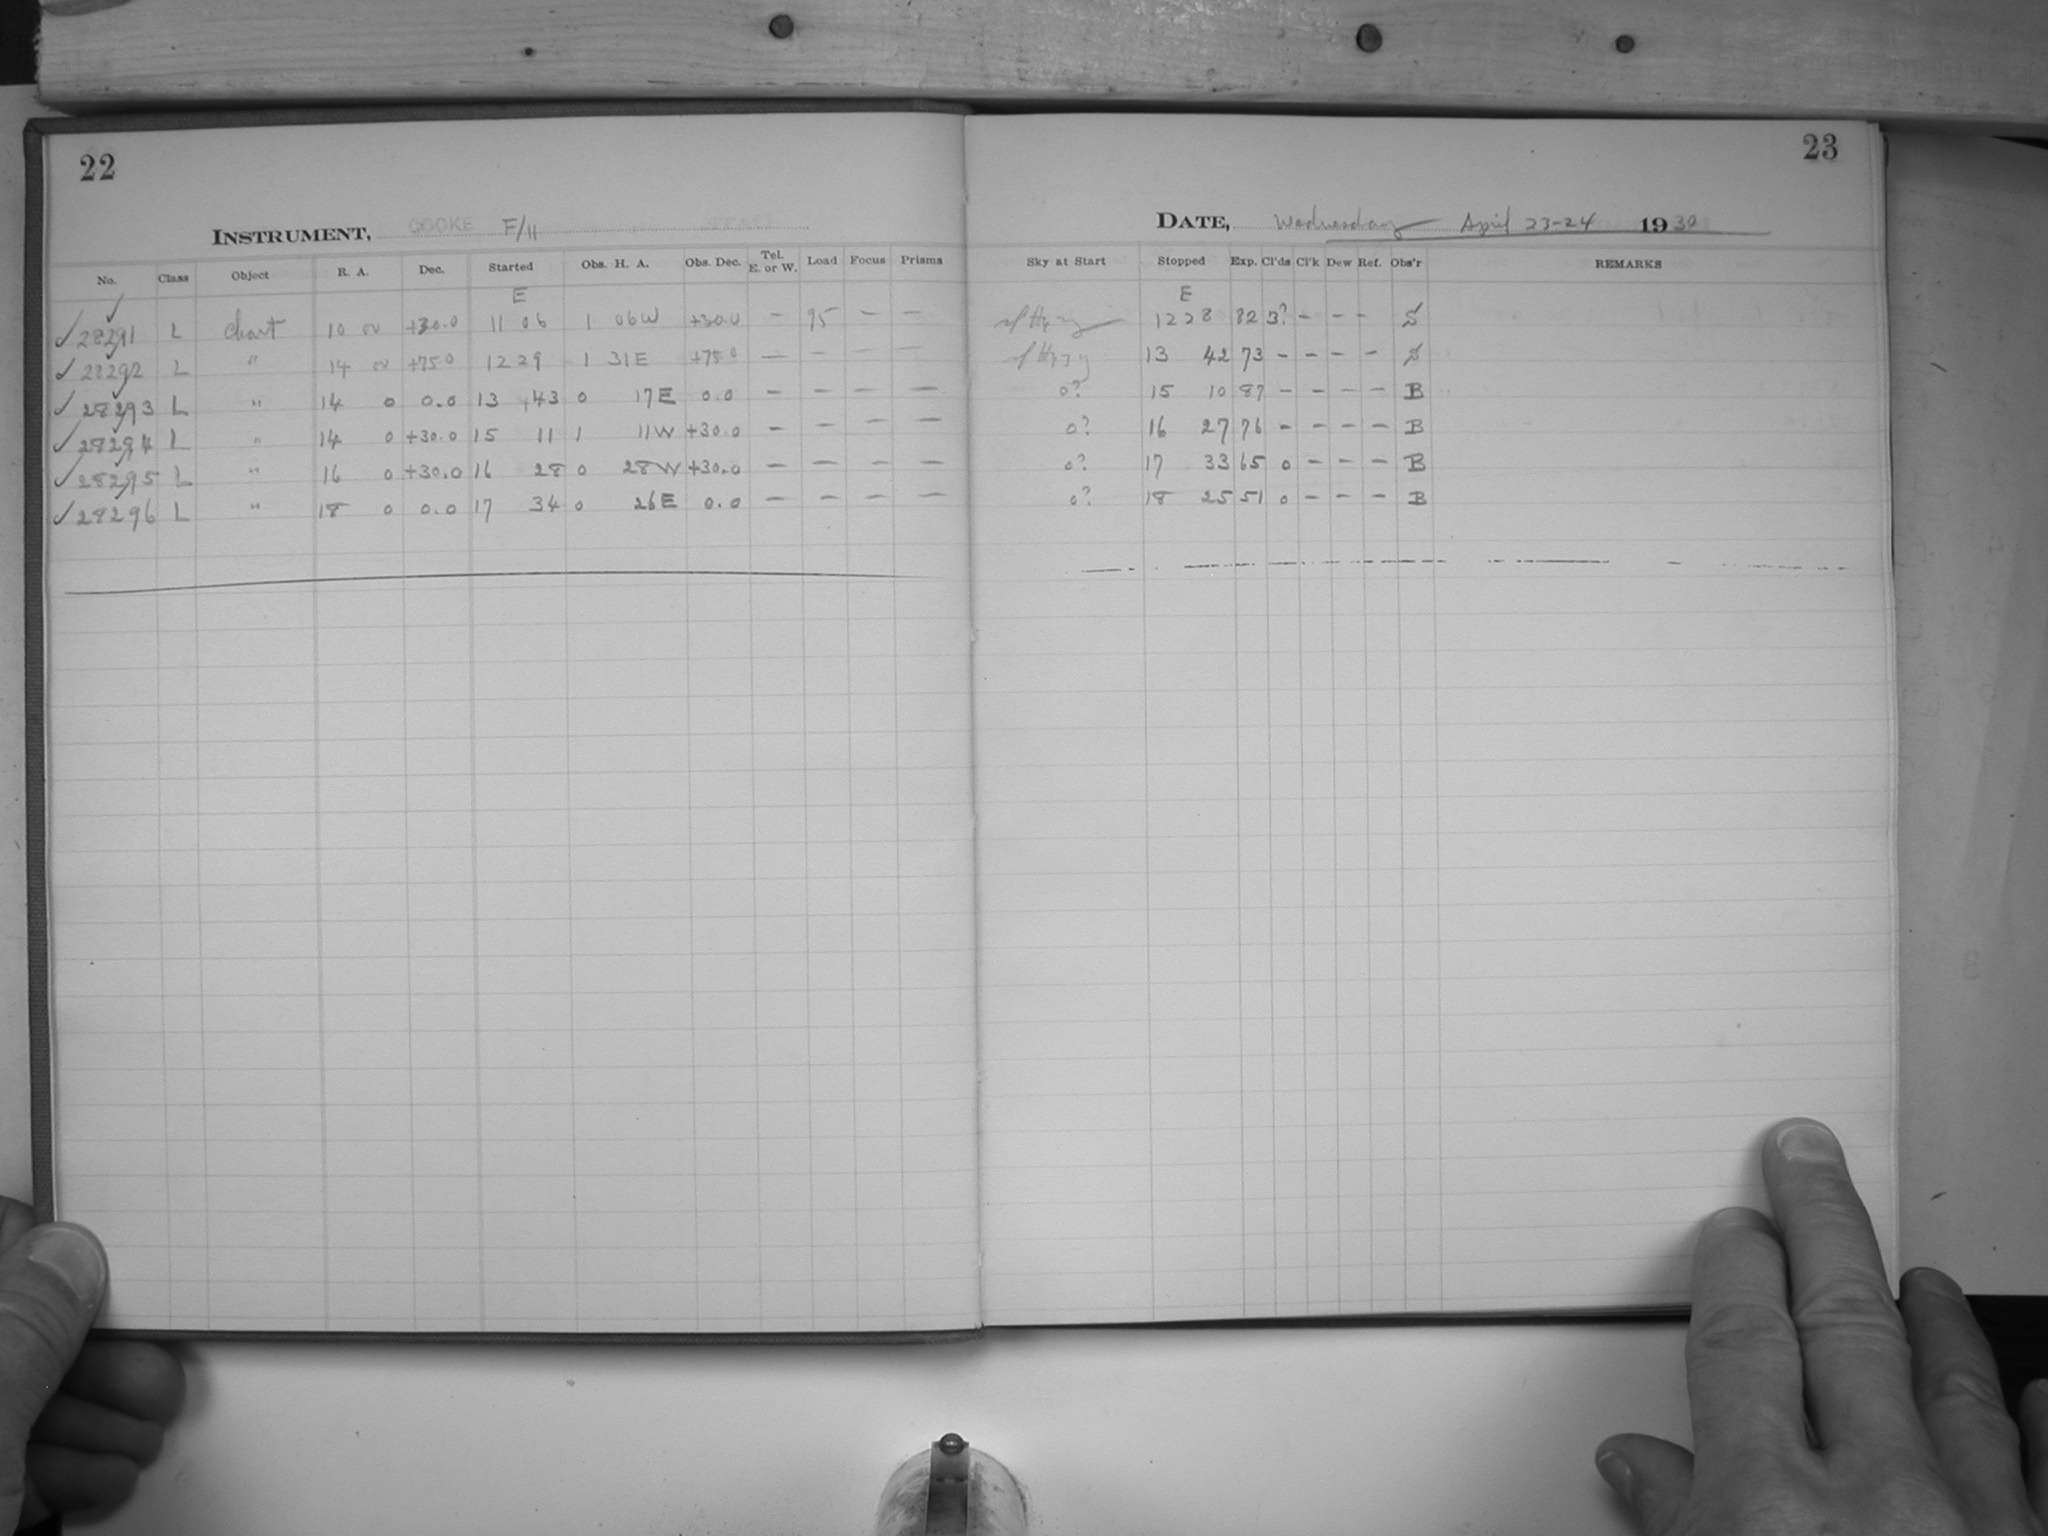 22
INSTRUMENT, COOKE F/11
No. Class Object R. A. Dec. Started Obs. H. A. Obs. Dec. Tel. E. or W. Load Focus Prisms
E
✓ 28291 L chart 10 00 +30.0 11 06 1 06W +30.0 – 95 – –
✓ 28292 L " 14 00 +75.0 12 29 1 31E +75.0 – – – –
✓ 28293 L " 14 0 0.0 13 43 0 17E 0.0 – – – –
✓ 28294 L " 14 0 +30.0 15 11 1 11W +30.0 – – – –
✓ 28295 L " 16 0 +30.0 16 28 0 28W +30.0 – – – –
✓ 28296 L " 18 0 0.0 17 34 0 26E 0.0 – – – –
23
DATE, Wednesday April 23-24 1930
Sky at Start Stopped Exp. Cl'ds Cl'k Dew Ref. Obs'r REMARKS
E
12 28 82 3? – – – S
13 42 73 – – – – S
0? 15 10 87 – – – – B
0? 16 27 76 – – – – B
0? 17 33 65 0 – – – B
0? 18 25 51 0 – – – B